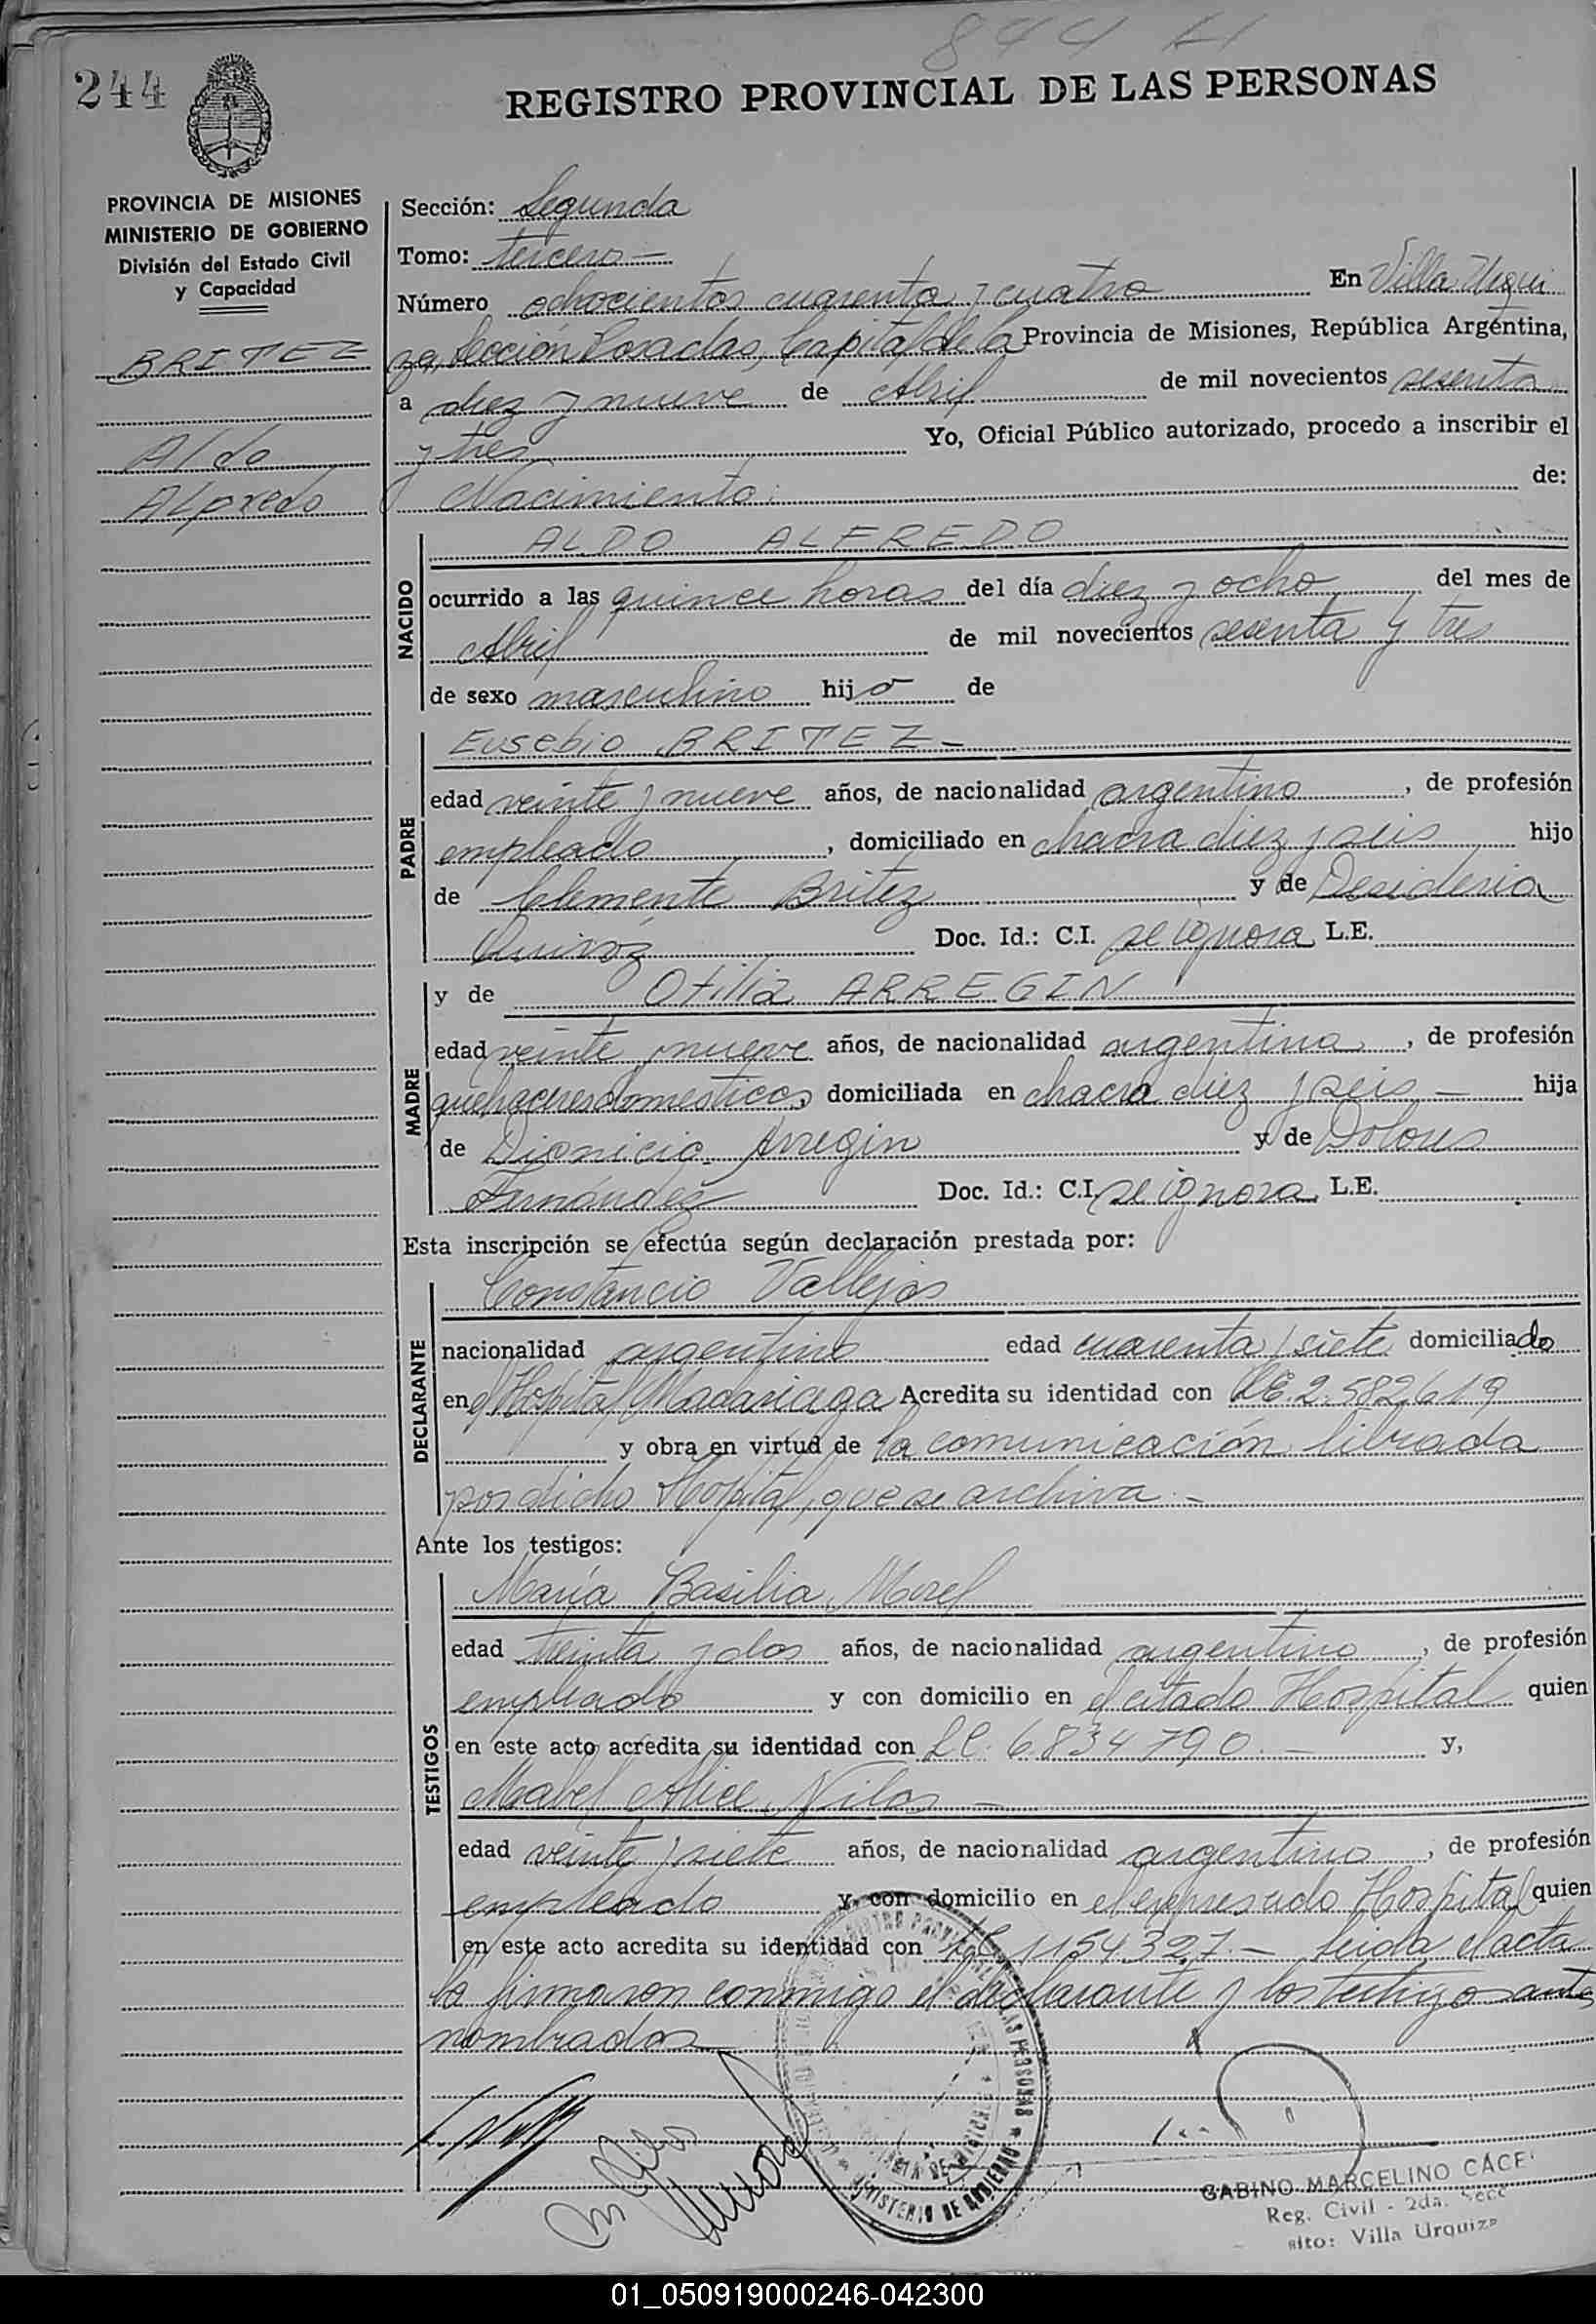 844
244
REGISTRO PROVINCIAL DE LAS PERSONAS
PROVINCIA DE MISIONES
MINISTERIO DE GOBIERNO
División del Estado Civil
y Capacidad
BRITEZ
Aldo
ALfredo
Sección: Segunda
Tomo: tercero —
Número ochocientos cuarenta y cuatro En Villa Urqui
za, Sección Posadas, Capital de la Provincia de Misiones, República Argentina,
a diez y nueve de Abril de mil novecientos sesenta
y tres Yo, Oficial Público autorizado, procedo a inscribir el
Nacimiento: de:
NACIDO
ALDO ALFREDO
ocurrido a las quince horas del día diez y ocho del mes de
Abril de mil novecientos sesenta y tres
de sexo masculino hijo de
PADRE
Eusebio BRITEZ —
edad veinte y nueve años, de nacionalidad argentino, de profesión
empleado, domiciliado en chacra diez y seis hijo
de Clemente Britez y de Desideria
Quiroz Doc. Id.: C.I. se ignora L.E.
MADRE
y de Otilia ARREGIN
edad veinte y nueve años, de nacionalidad argentina, de profesión
quehaceres domesticos, domiciliada en chacra diez y seis — hija
de Dionicio Arregin y de Dolores
Fernández Doc. Id.: C.I. se ignora L.E.
Esta inscripción se efectúa según declaración prestada por:
DECLARANTE
Constancio Vallejos
nacionalidad argentino edad cuarenta y siete domiciliado
en Hospital Madariaga Acredita su identidad con LE. 2.582.619
y obra en virtud de la comunicación librada
por dicho Hospital, que se archiva. —
Ante los testigos:
TESTIGOS
María Basilia Morel
edad treinta y dos años, de nacionalidad argentino, de profesión
empleado y con domicilio en el citado Hospital quien
en este acto acredita su identidad con LC. 6.834.790. — y,
Mabel Alice Nilos —
edad veinte y siete años, de nacionalidad argentino, de profesión
empleado y con domicilio en el expresado Hospital quien
en este acto acredita su identidad con LC 1154.327. — Leida el acta
la firmaron conmigo el declarante y los testigos ante
nombrados
REGISTRO PROVINCIAL DE LAS PERSONAS
MINISTERIO DE GOBIERNO
GABINO MARCELINO CACE
Reg. Civil - 2da. Secc
sito: Villa Urquiza
01_050919000246-042300